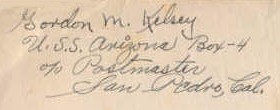 Gordon M. Kelsey
U.S.S. Arizona Box-4
c/o Postmaster
San Pedro, Cal.